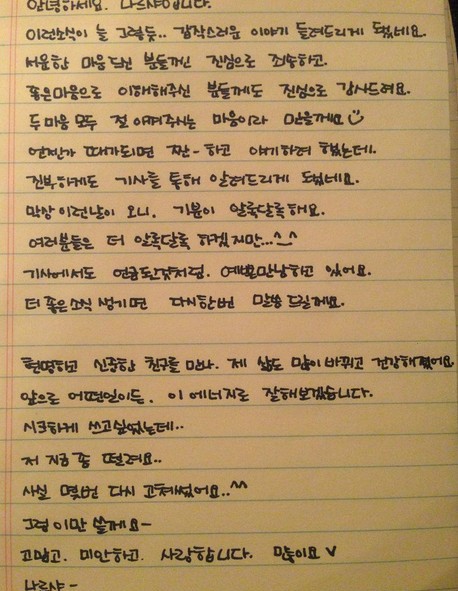 안녕하세요. 나르샤입니다.
이런소식이 늘 그렇듯.. 갑작스러운 이야기 들려드리게 됐네요.
서운한 마음드신 분들껜 진심으로 죄송하고.
좋은마음으로 이해해주신 분들께도 진심으로 감사드려요.
두마음 모두 절 아껴주시는 마음이라 믿을께요
언젠가 때가되면 짠-하고 얘기하려 했는데.
진부하게도 기사를 통해 알려드리게 됐네요.
막상 이런날이 오니. 기분이 알록달록해요.
여러분들은 더 알록달록 하겠지만...^_^
기사에서도 언급된것처럼. 예쁜만남하고 있어요.
더 좋은소식 생기면 다시한번 말씀 드릴게요.
현명하고 신중한 친구를 만나. 제 삶도 많이 바뀌고 건강해졌어요.
앞으로 어떤일이든. 이 에너지로 잘해보겠습니다.
시크하게 쓰고싶었는데..
저 지금 좀 떨려요..
사실 몇번 다시 고쳐썼어요..^^
그럼 이만 쓸게요-
고맙고. 미안하고. 사랑합니다. 많이요 V
나르샤-